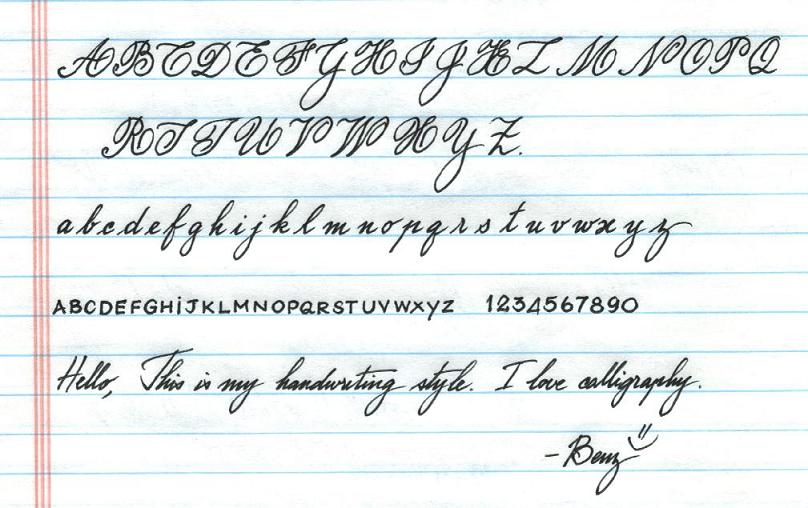 ABCDEFGHIJKLMNOPQ
RSTUVWXYZ.
abcdefghijklmnopqrstuvwxyz
ABCDEFGHiJKLMNOPQRSTUVWXyZ 1234567890
Hello, This is my handwriting style. I love calligraphy.
-Benz